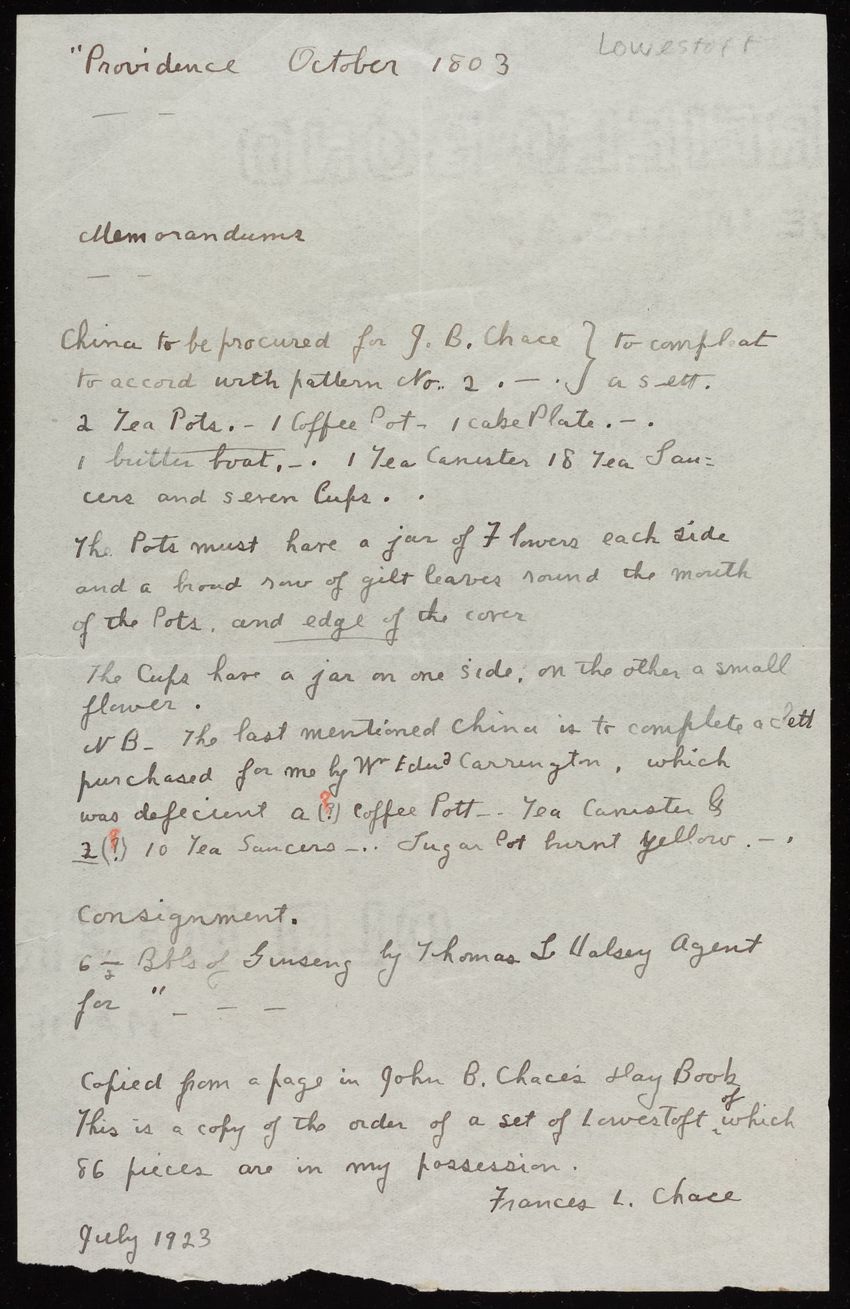 Lowestoft
"Providence October 1803
— —
Memorandums
— —
China to be procured for J. B. Chace } to compleat
to accord with pattern No. 2 . — . } a sett.
2 Tea Pots. - 1 Coffee Pot - 1 cake Plate. - .
1 butter boat, - . 1 Tea Canister 18 Tea Sau=
cers and seven Cups . .
The Pots must have a jar of Flowers each side
and a broad row of gilt leaves round the mouth
of the Pots, and edge of the cover
The Cups have a jar on one side, on the other a small
flower .
N B - The last mentioned China is to complete a Sett
purchased for me by Wm Edwd Carrington, which
was defecient a (?) Coffee Pott - - Tea Canister &
2 (?) 10 Tea Saucers - . . Sugar Pot burnt yellow . - .
Consignment.
6 1/2 Bbls of Ginseng by Thomas L Halsey Agent
for " _ _ _
Copied from a page in John B. Chace's Day Book
This is a copy of the order of a set of Lowestoft of which
86 pieces are in my possession.
Frances L. Chace
July 1923